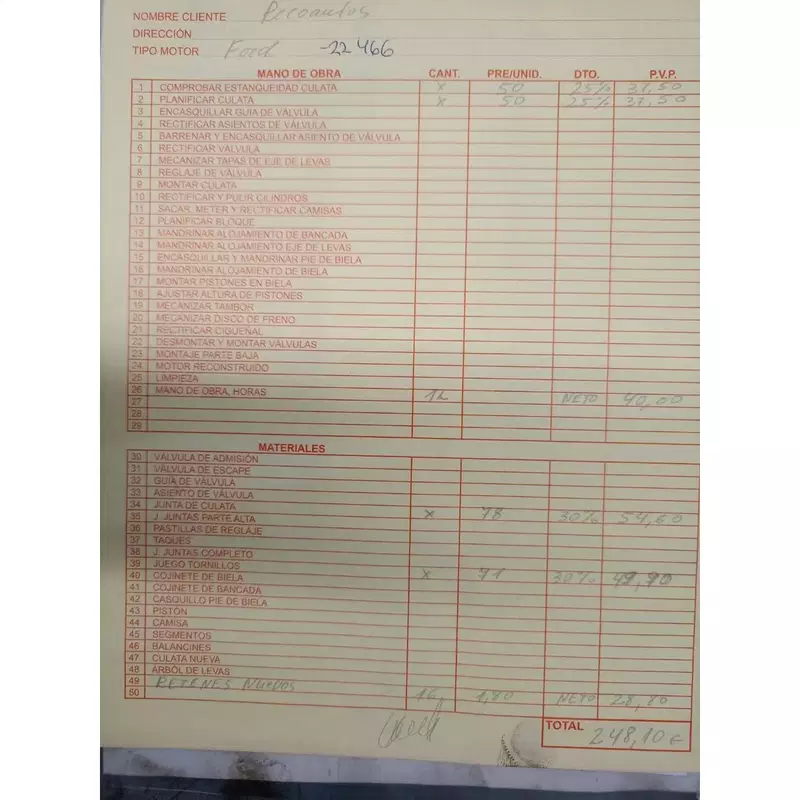 NOMBRE CLIENTE Recoautos
DIRECCIÓN
TIPO MOTOR Ford -22466
MANO DE OBRA CANT. PRE/UNID. DTO. P.V.P.
1 COMPROBAR ESTANQUEIDAD CULATA x 50 25% 37,50
2 PLANIFICAR CULATA x 50 25% 37,50
3 ENCASQUILLAR GUIA DE VÁLVULA
4 RECTIFICAR ASIENTOS DE VÁLVULA
5 BARRENAR Y ENCASQUILLAR ASIENTO DE VÁLVULA
6 RECTIFICAR VÁLVULA
7 MECANIZAR TAPAS DE EJE DE LEVAS
8 REGLAJE DE VÁLVULA
9 MONTAR CULATA
10 RECTIFICAR Y PULIR CILINDROS
11 SACAR, METER Y RECTIFICAR CAMISAS
12 PLANIFICAR BLOQUE
13 MANDRINAR ALOJAMIENTO DE BANCADA
14 MANDRINAR ALOJAMIENTO EJE DE LEVAS
15 ENCASQUILLAR Y MANDRINAR PIE DE BIELA
16 MANDRINAR ALOJAMIENTO DE BIELA
17 MONTAR PISTONES EN BIELA
18 AJUSTAR ALTURA DE PISTONES
19 MECANIZAR TAMBOR
20 MECANIZAR DISCO DE FRENO
21 RECTIFICAR CIGUEÑAL
22 DESMONTAR Y MONTAR VÁLVULAS
23 MONTAJE PARTE BAJA
24 MOTOR RECONSTRUIDO
25 LIMPIEZA
26 MANO DE OBRA, HORAS 12 NETO 40,00
27
28
29
MATERIALES
30 VÁLVULA DE ADMISIÓN
31 VÁLVULA DE ESCAPE
32 GUIA DE VÁLVULA
33 ASIENTO DE VÁLVULA
34 JUNTA DE CULATA
35 J. JUNTAS PARTE ALTA x 78 30% 54,60
36 PASTILLAS DE REGLAJE
37 TAQUES
38 J. JUNTAS COMPLETO
39 JUEGO TORNILLOS
40 COJINETE DE BIELA x 71 30% 49,70
41 COJINETE DE BANCADA
42 CASQUILLO PIE DE BIELA
43 PISTÓN
44 CAMISA
45 SEGMENTOS
46 BALANCINES
47 CULATA NUEVA
48 ÁRBOL DE LEVAS
49 RETENES NUEVOS
50 16 1,80 NETO 28,80
TOTAL 248,10 €